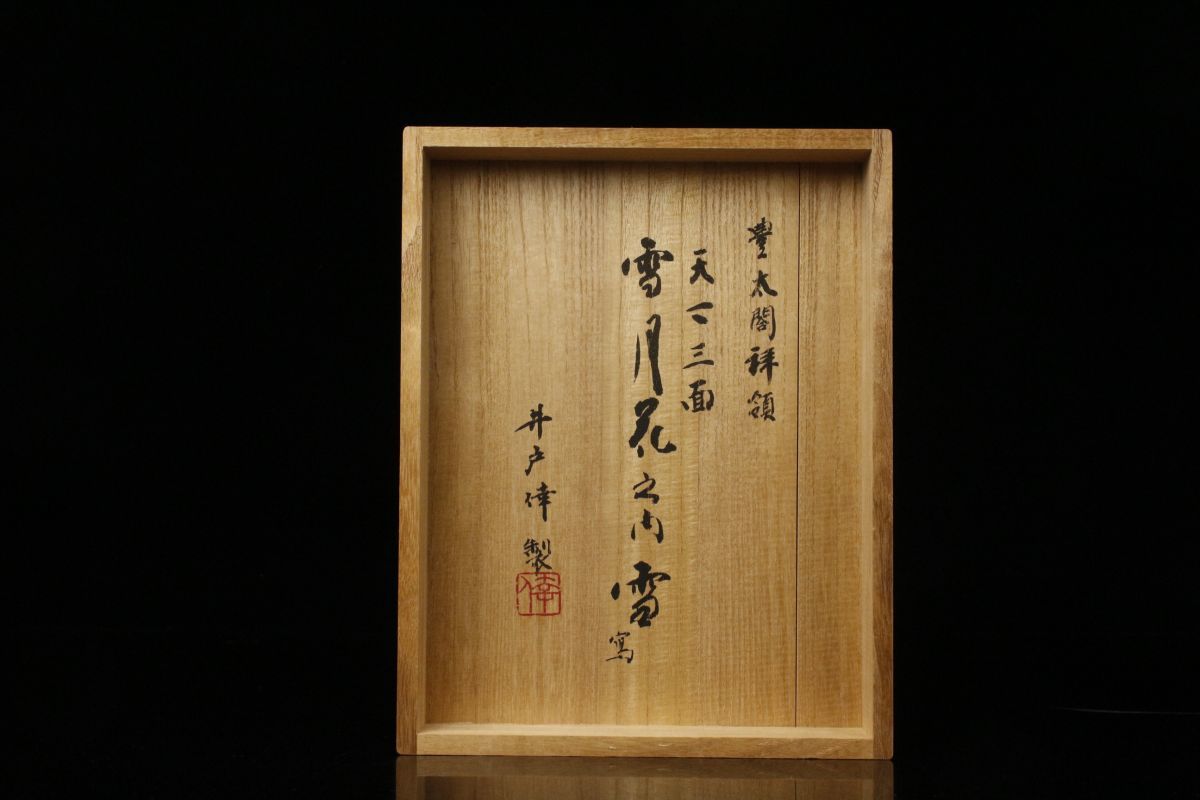 豊太閤拝領
天下三面
雪月花之内雪寫
井戸倖製
倖